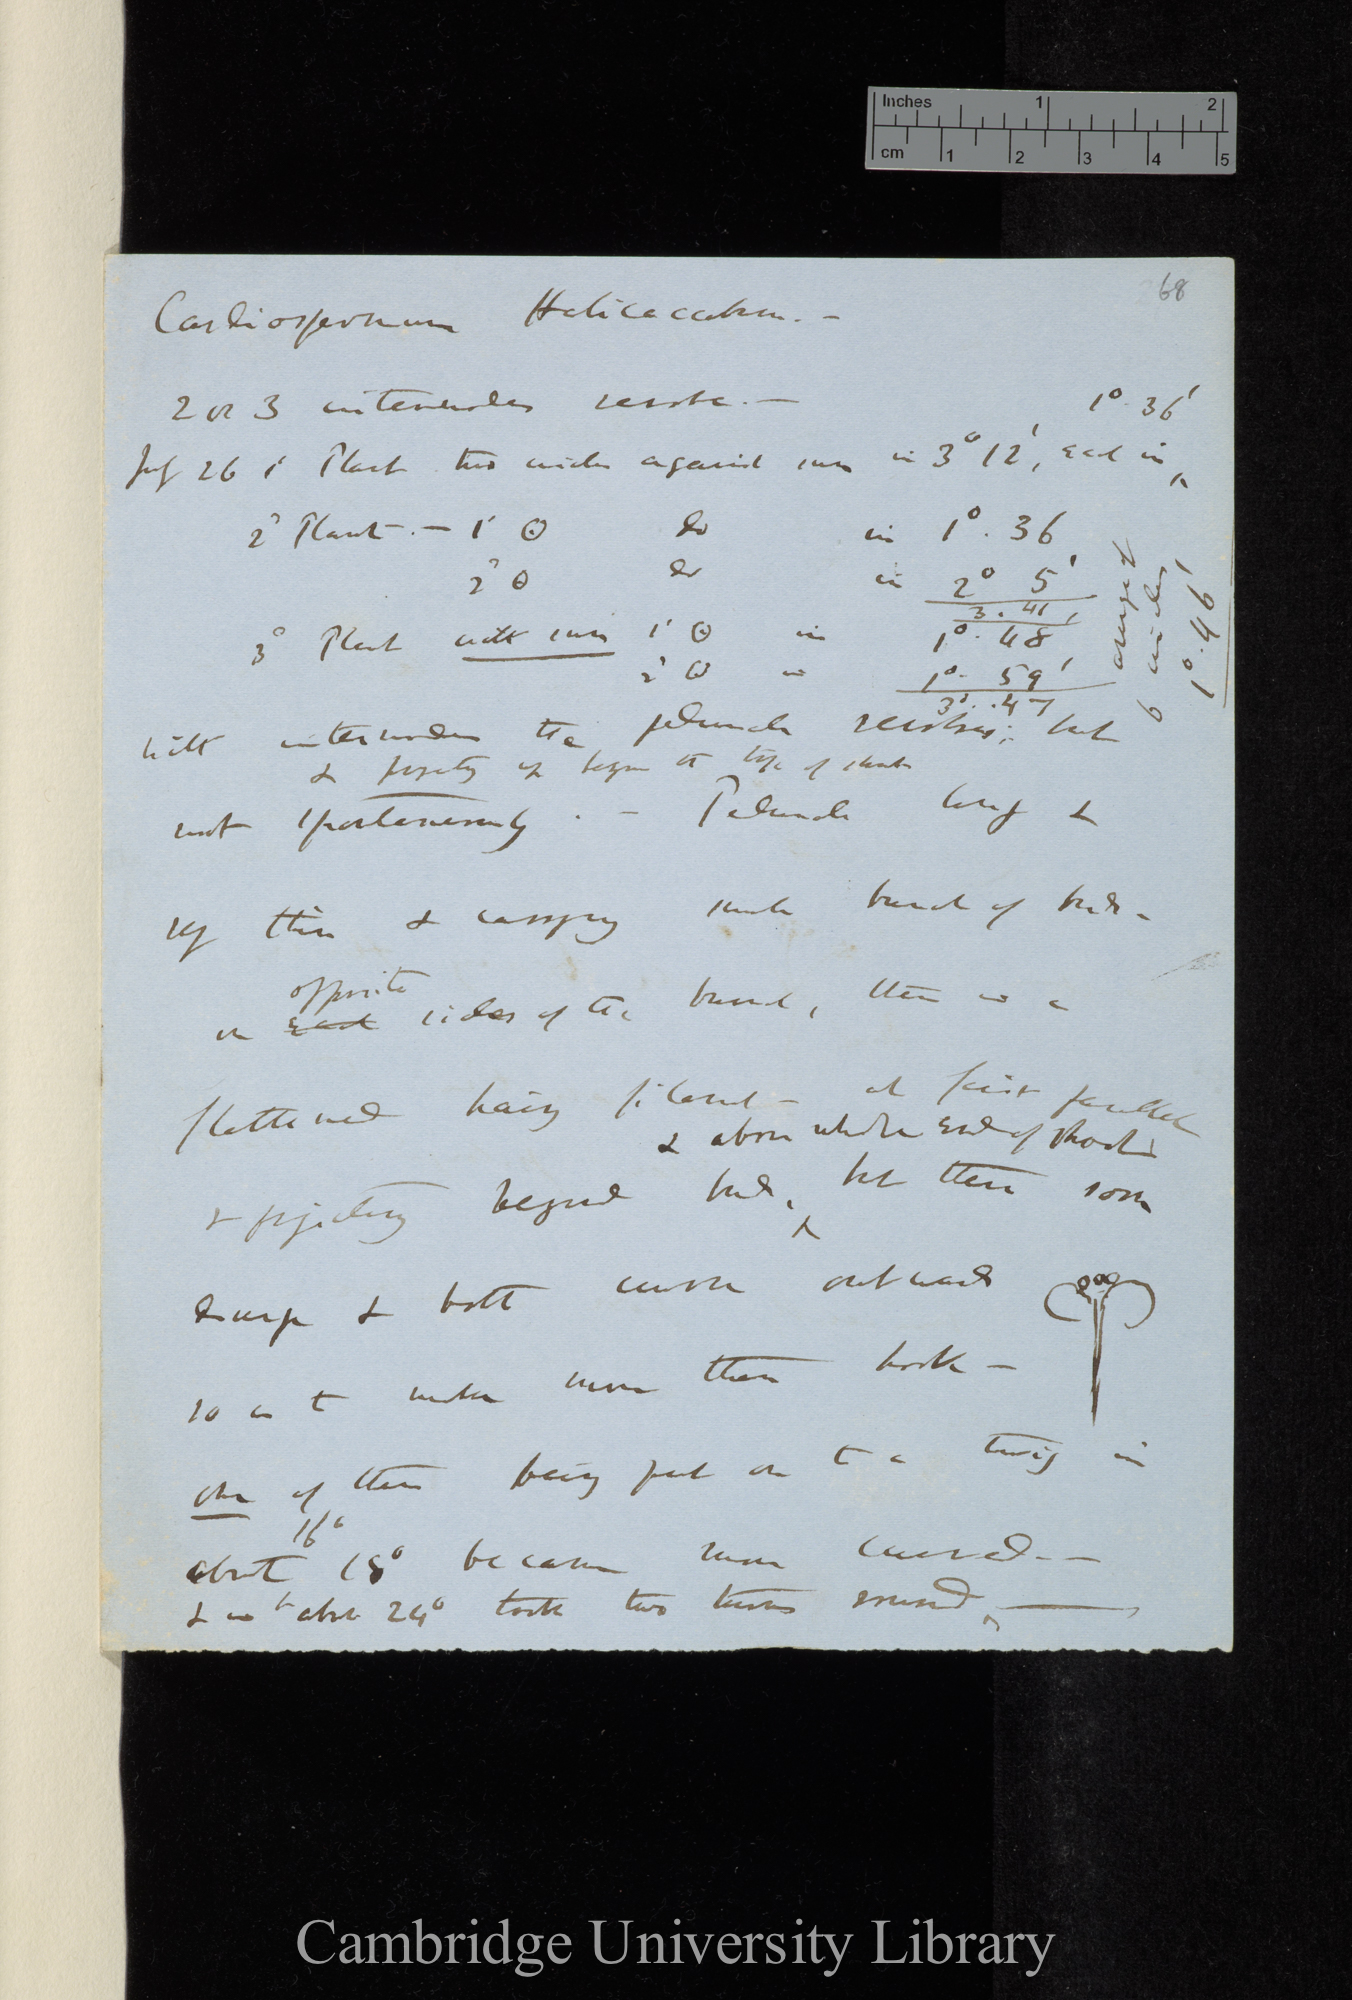 Inches 1 2
cm 1 2 3 4 5
68
Cardiospermum Halicacabum. —
2 or 3 internodes revolve. — 1°. 36'
July 26 1' Plant two circles against sun in 3° 12', each in ^
2° Plant. — 1' ⊙ do in 1°. 36
2° ⊙ do in 2° 5'
3. 41'
3° Plant with sun 1' ⊙ in 1°. 48
2' ⊙ in 1°. 59'
3°. 47
average of
6 circles
1°. 46'
With internodes the peduncle revolves; but
& projecting up beyond the tips of shoots
not spontaneously. — Peduncle long &
very thin & carrying small bunch of buds —
opposite
on each sides of the bunch, there is a
flattened hairy filament — at first parallel
& above whole end of shoot
& projecting beyond buds, ^ but then soon
diverge & both curve outward
so as to make more than hook —
one of them being put on to a twig in
16°
about 18° became more curved. —
& in about 24° took two turns round, —
Cambridge University Library